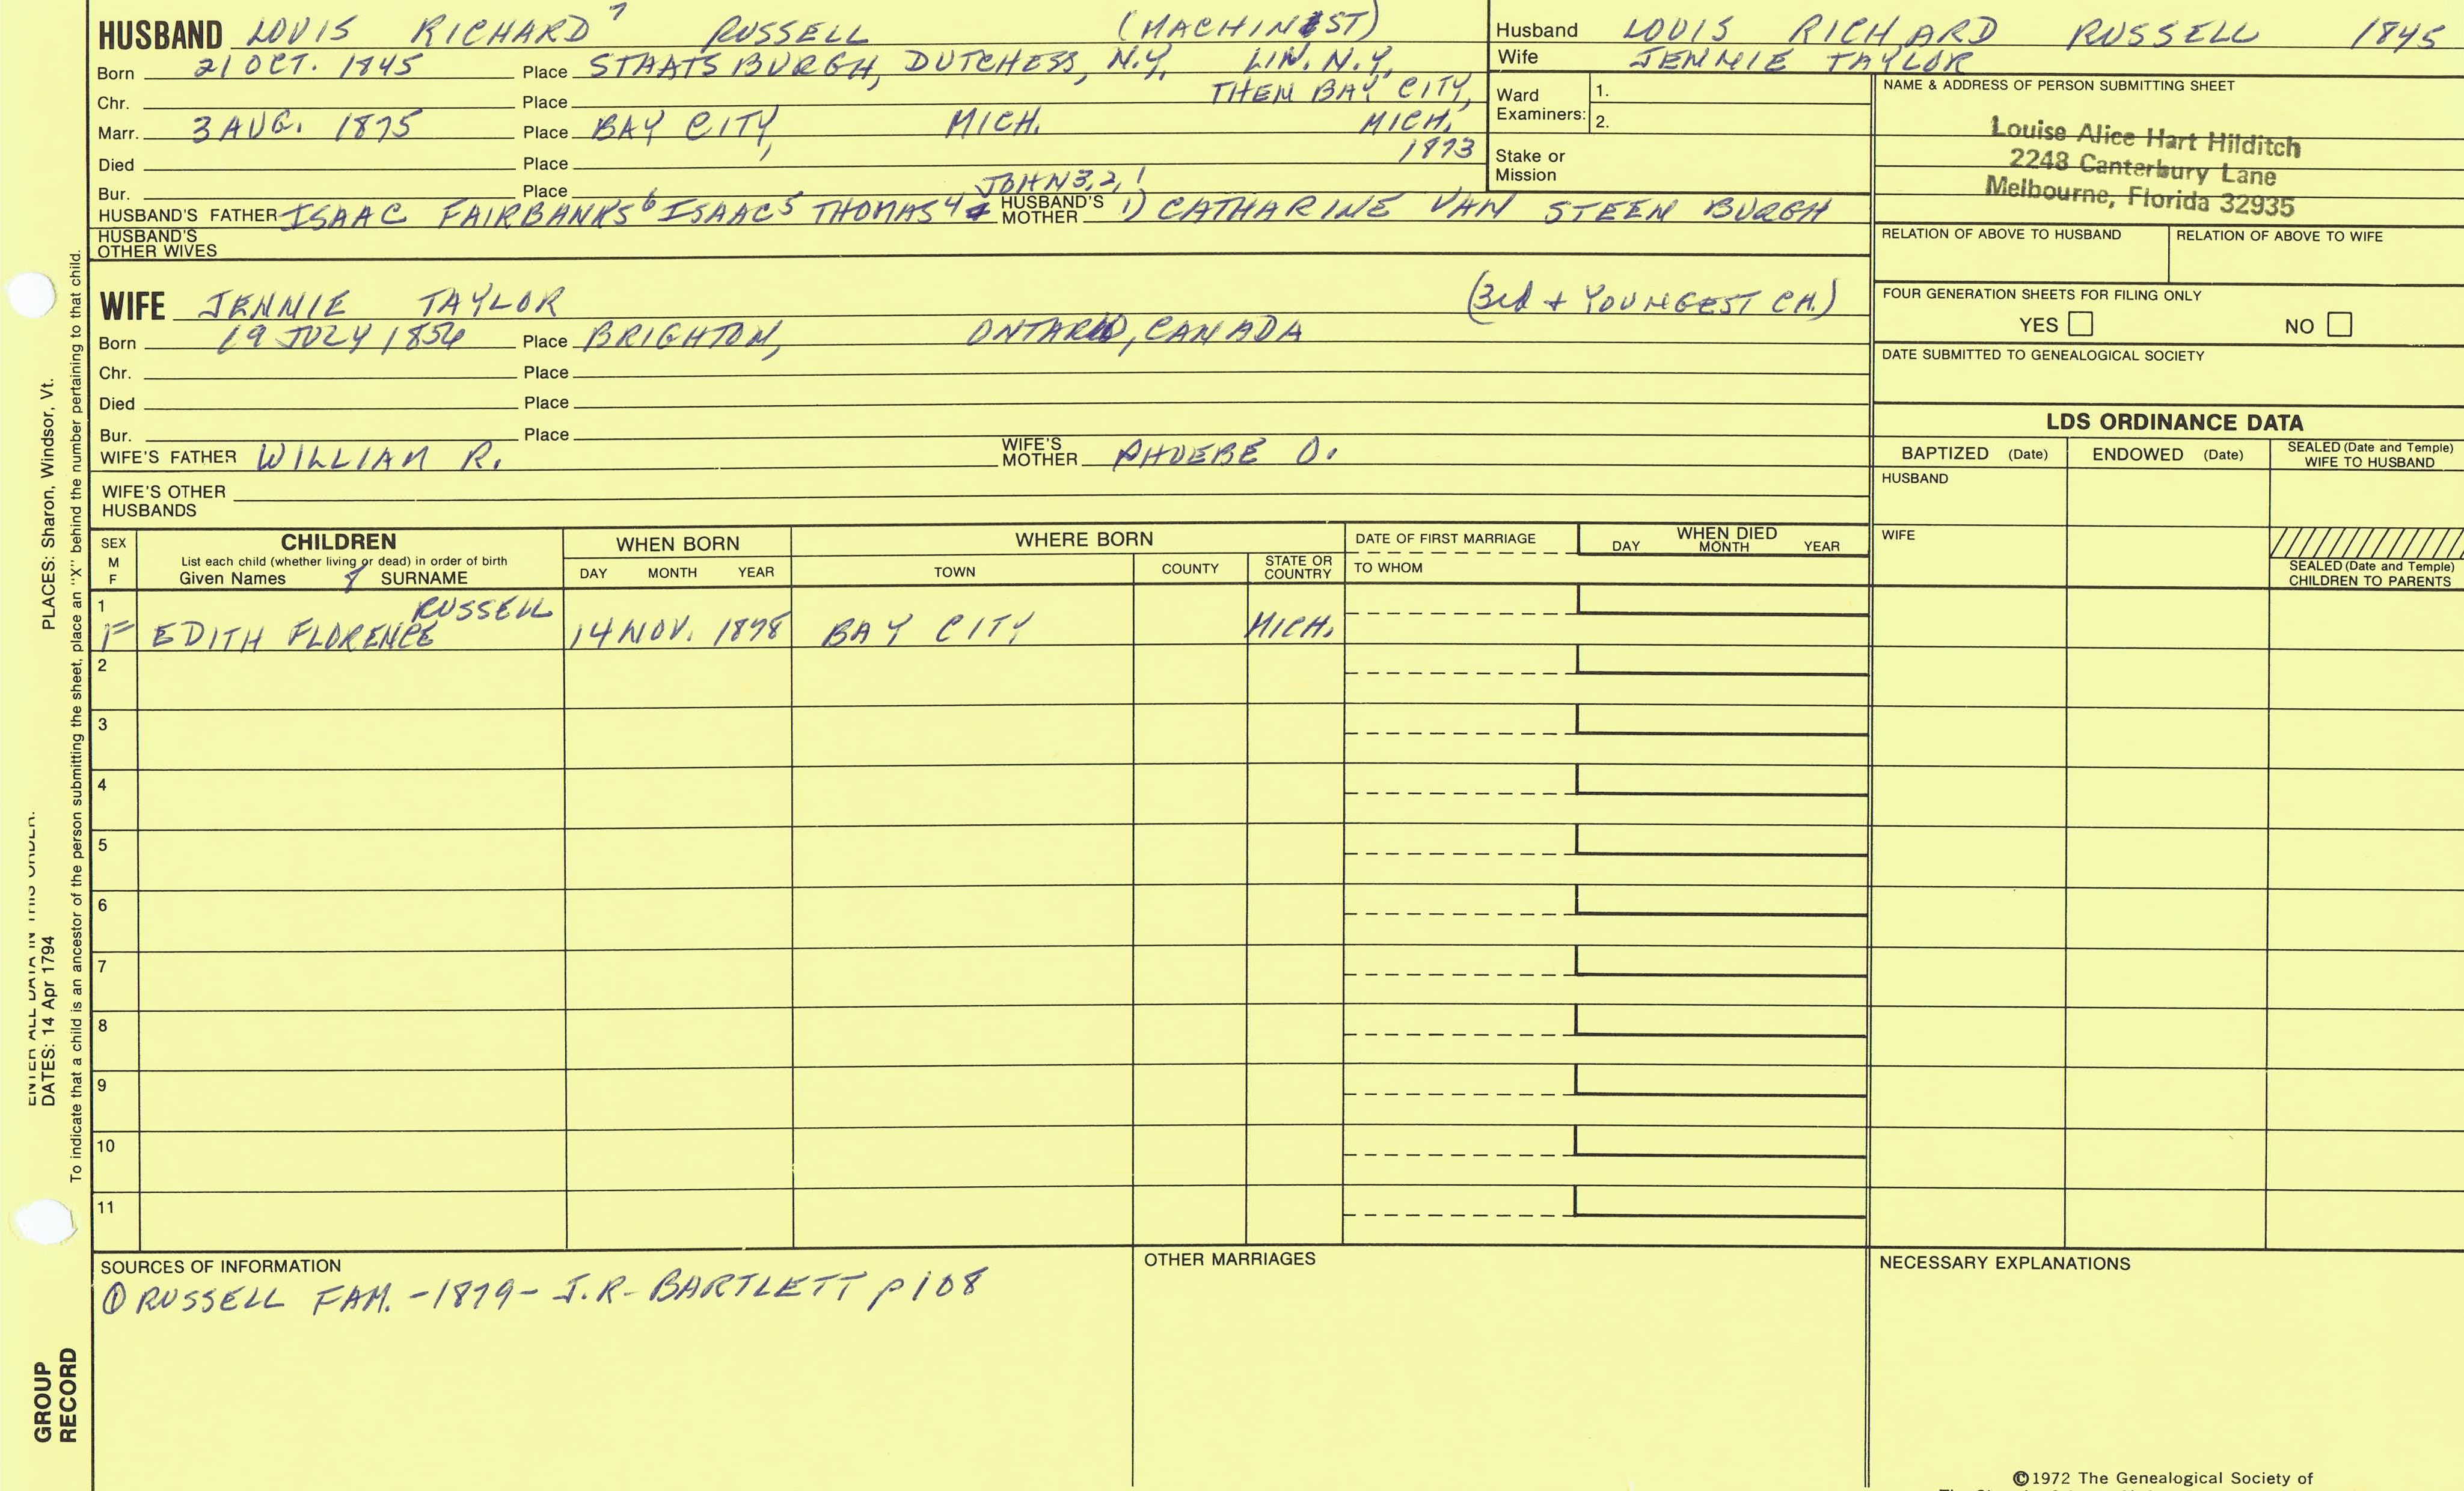 HUSBAND LOUIS RICHARD 7 RUSSELL (MACHINIST)
Born 21 OCT. 1845 Place STAATSBURGH, DUTCHESS, N.Y. LIN. N.Y.
Chr. Place THEN BAY CITY,
Marr. 3 AUG. 1875 Place BAY CITY, MICH. MICH.
Died Place 1873
Bur. Place JOHN 3,2,1
HUSBAND'S FATHER ISAAC FAIRBANKS 6 ISAAC 5 THOMAS 4 HUSBAND'S MOTHER 1) CATHARINE VAN STEEN BURGH
HUSBAND'S OTHER WIVES
Husband LOUIS RICHARD RUSSELL 1845
Wife JENNIE TAYLOR
Ward Examiners: 1.
2.
Stake or Mission
NAME & ADDRESS OF PERSON SUBMITTING SHEET
Louise Alice Hart Hilditch
2248 Canterbury Lane
Melbourne, Florida 32935
RELATION OF ABOVE TO HUSBAND RELATION OF ABOVE TO WIFE
FOUR GENERATION SHEETS FOR FILING ONLY
YES NO
DATE SUBMITTED TO GENEALOGICAL SOCIETY
WIFE JENNIE TAYLOR (3rd + YOUNGEST CH.)
Born 19 JULY 1856 Place BRIGHTON, ONTARIO, CANADA
Chr. Place
Died Place
Bur. Place
WIFE'S FATHER WILLIAM R. WIFE'S MOTHER PHOEBE O.
WIFE'S OTHER HUSBANDS
LDS ORDINANCE DATA
BAPTIZED (Date) ENDOWED (Date) SEALED (Date and Temple) WIFE TO HUSBAND
HUSBAND
WIFE
SEALED (Date and Temple) CHILDREN TO PARENTS
SEX M F
CHILDREN
List each child (whether living or dead) in order of birth
Given Names 8 SURNAME
WHEN BORN
DAY MONTH YEAR
WHERE BORN
TOWN COUNTY STATE OR COUNTRY
DATE OF FIRST MARRIAGE
TO WHOM
WHEN DIED
DAY MONTH YEAR
1 RUSSELL
F EDITH FLORENCE 14 NOV. 1878 BAY CITY MICH.
2
3
4
5
6
7
8
9
10
11
SOURCES OF INFORMATION
① RUSSELL FAM. - 1879 - J.R. BARTLETT p 108
OTHER MARRIAGES
NECESSARY EXPLANATIONS
©1972 The Genealogical Society of
ENTER ALL DATA IN THIS ORDER.
DATES: 14 Apr 1794 PLACES: Sharon, Windsor, Vt.
To indicate that a child is an ancestor of the person submitting the sheet, place an "X" behind the number pertaining to that child.
GROUP
RECORD